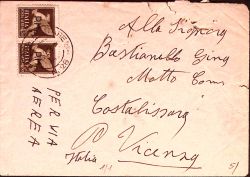 Alla Signora
Bastianello Gina
Motto Com
Costabissara
P Vicenza
Italia
PER VIA
AEREA